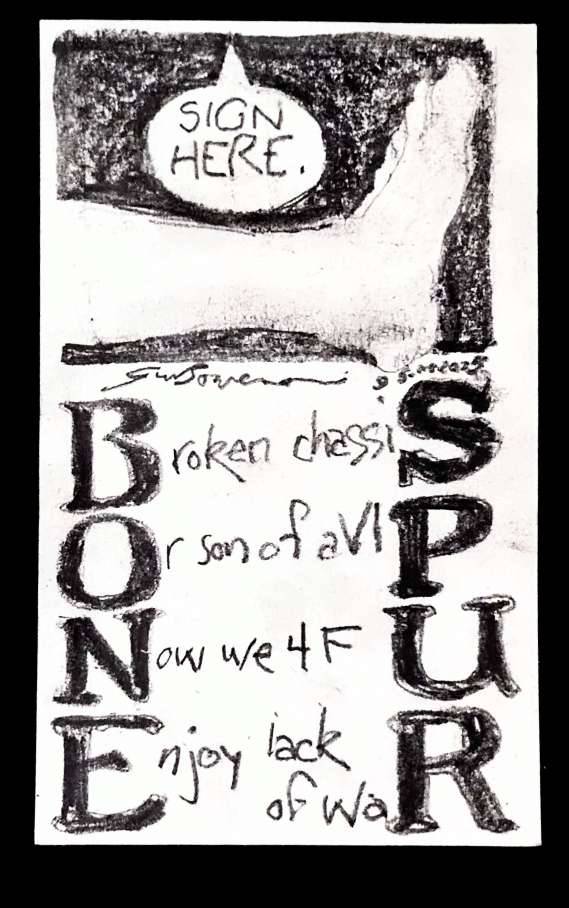 SIGN
HERE.
Broken chassiS
Or son of a VIP
Now we 4F U
Enjoy lack
of waR